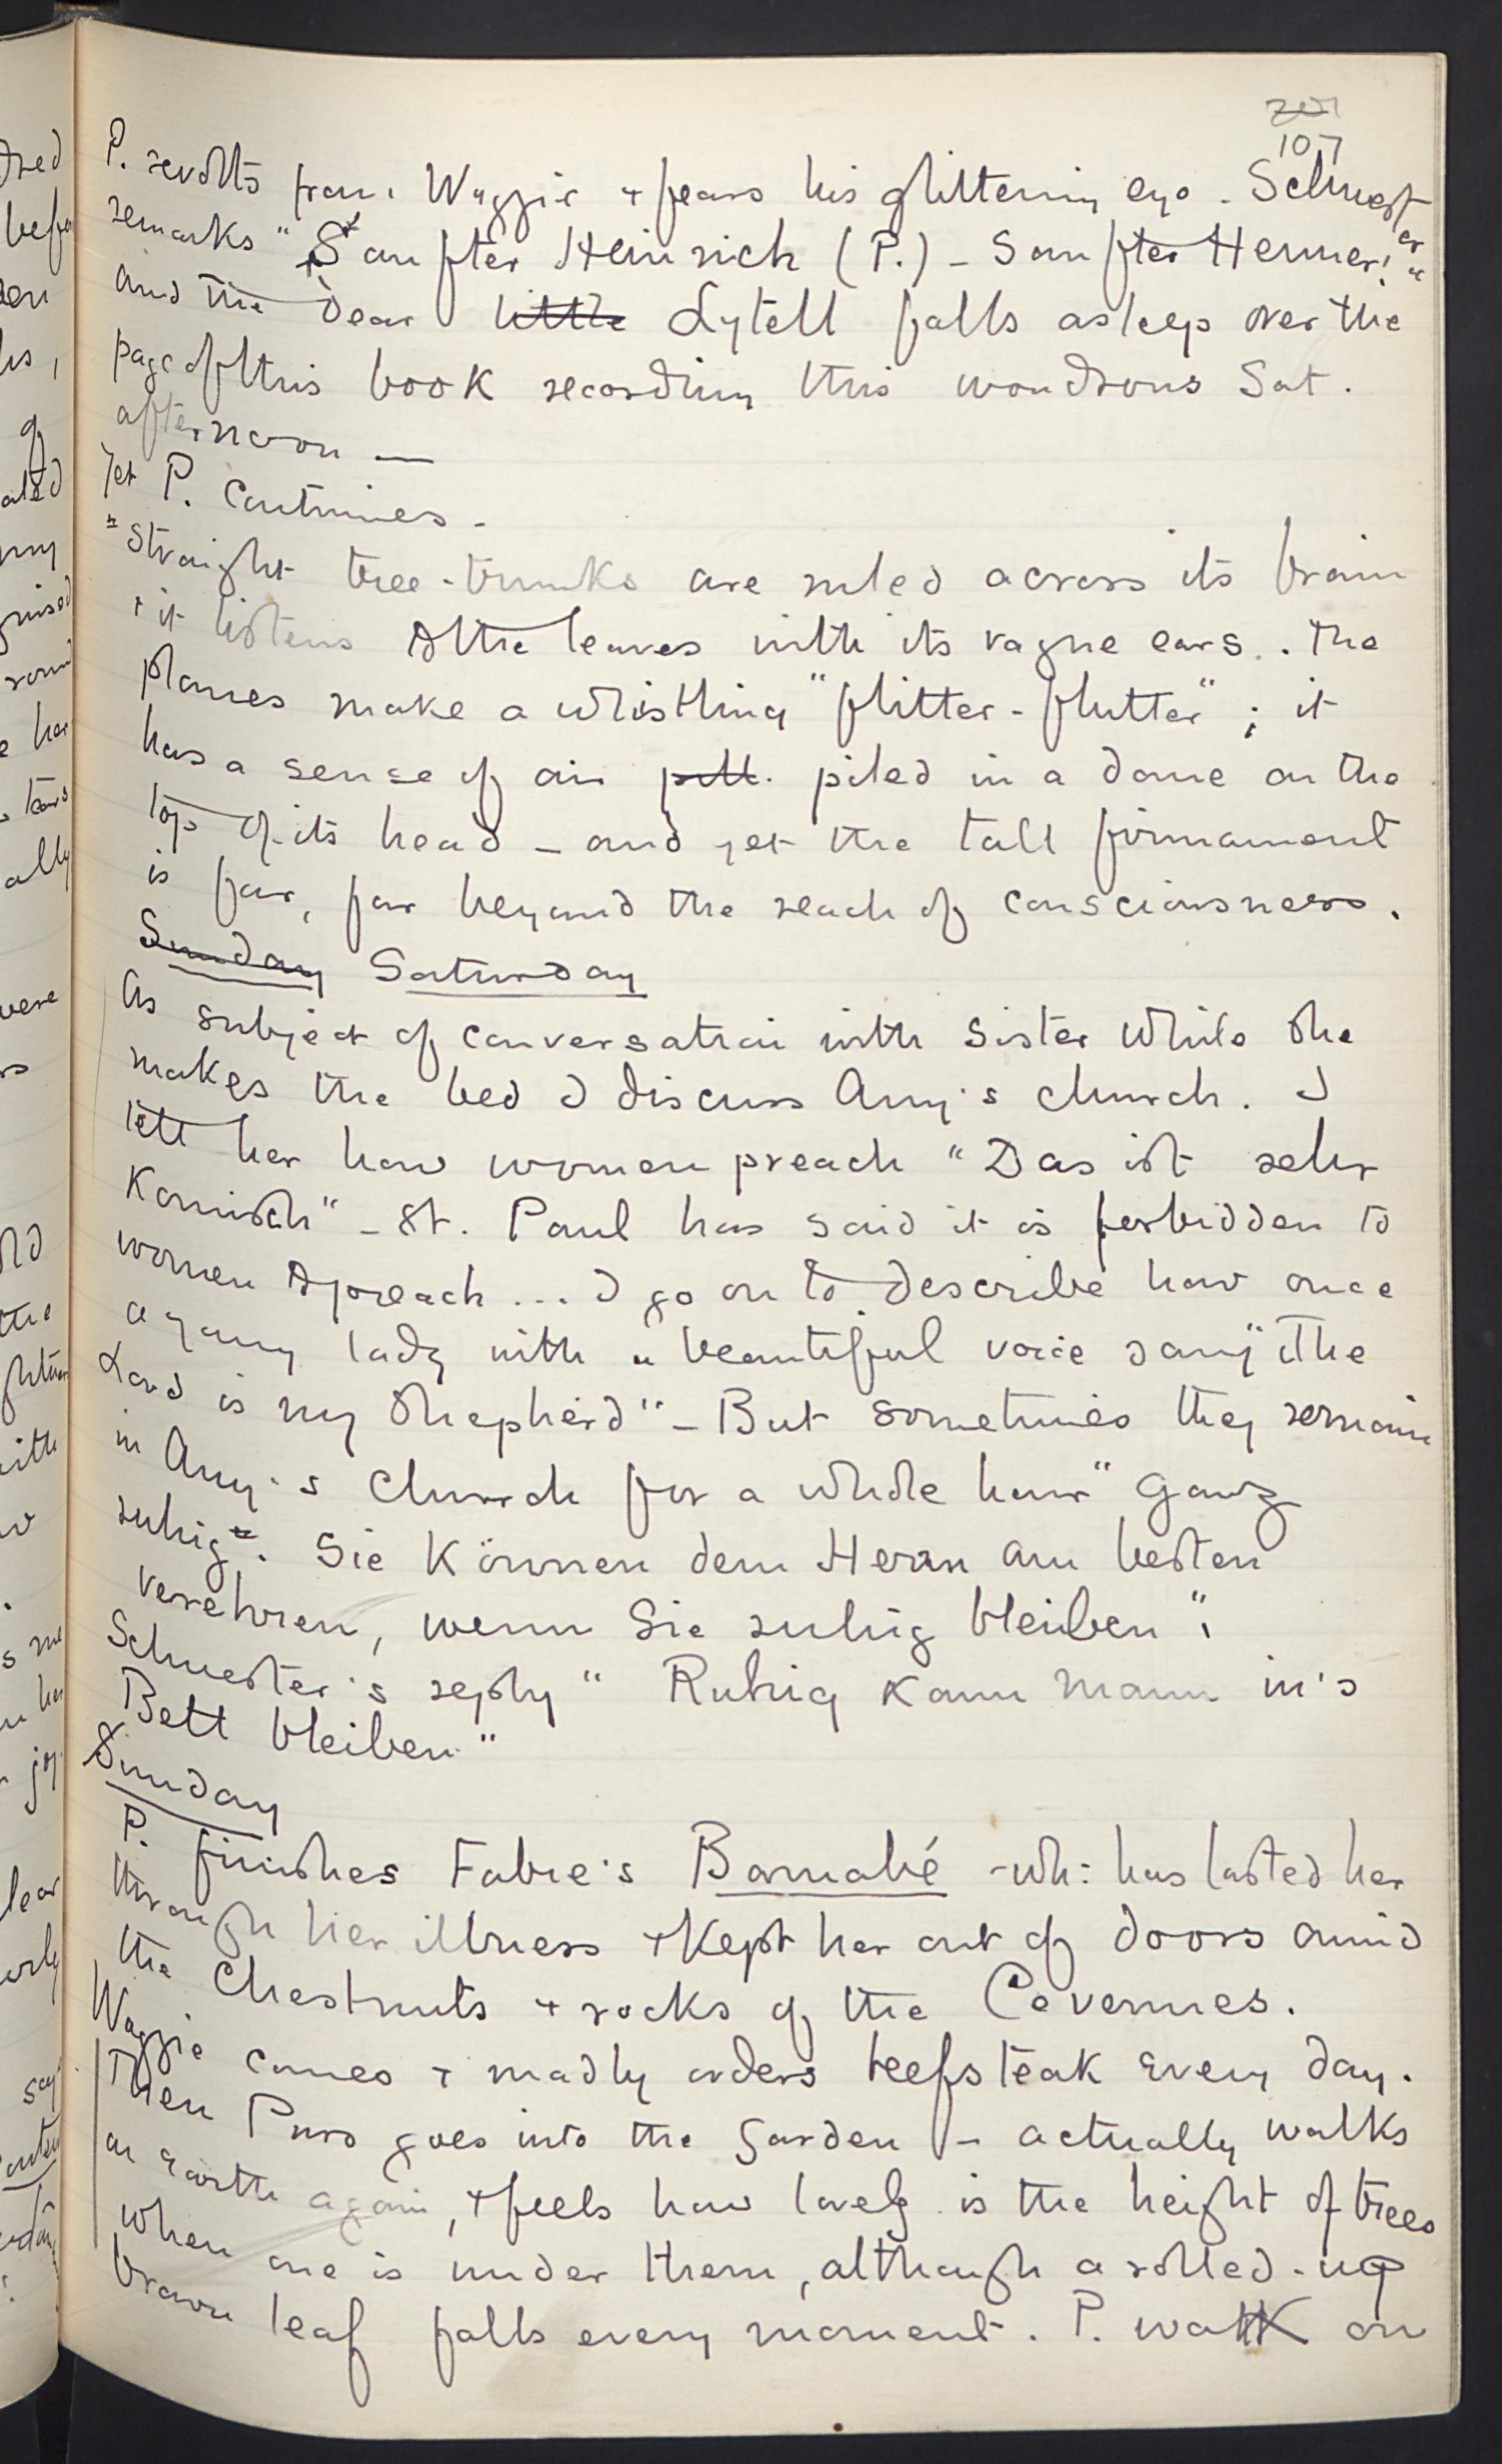 107
P. revolts from Waggie + fears his glittering eye. Schwester
remarks "Sanfter Heinrich (P.) – Sanfter Henner!"
and the dear little Lytell falls asleep over the
page of this book recording this wondrous Sat.
afternoon —
Yet P. continues –
"Straight tree-trunks are ruled across its brain
+ it listens to the leaves with its vague ears. . The
planes make a whistling "flitter-flutter"; it
has a sense of air piled in a dome on the
top of its head – and yet the tall firmament
is far, far beyond the reach of consciousness.
Sunday Saturday
As subject of conversation with Sister while she
makes the bed I discuss Amy's church. I
tell her how women preach "Das ist sehr
Komisch" – St. Paul has said it is forbidden to
women to preach ... I go on to describe how once
a young lady with a beautiful voice sang "The
Lord is my Shepherd" – But sometimes they remain
in Amy's Church for a whole hour "ganz
ruhig". Sie Können dem Herrn am besten
verehren, wenn Sie ruhig bleiben".
Schwester's reply "Ruhig kann mann in's
Bett bleiben."
Sunday
P. finishes Fabre's Barnabé – wh: has lasted her
through her illness + kept her out of doors amid
the Chestnuts + rocks of the Cevennes.
Waggie comes + madly orders beefsteak every day.
Then Puss goes into the garden – actually walks
on earth again, + feels how lovely is the height of trees
when one is under them, although a rolled-up
brown leaf falls every moment. P. walk on